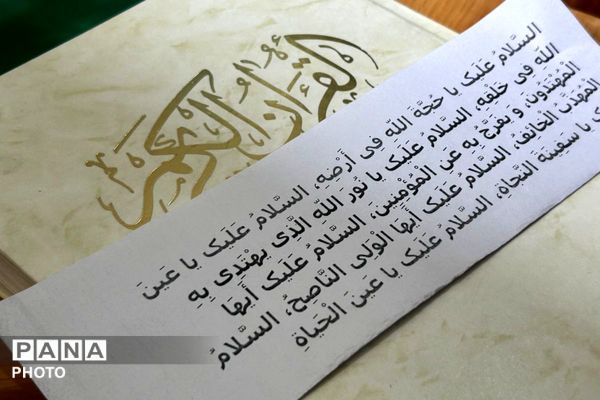 القرآن الكريم
السَّلامُ عَلَیْکَ یا حُجَّةَ اللَّهِ فی أَرْضِهِ، السَّلامُ عَلَیْکَ یا عَینَ
اللَّهِ فی خَلْقِهِ، السَّلامُ عَلَیْکَ یا نُورَ اللَّهِ الَّذی یهْتَدی بِهِ
الْمُهْتَدُونَ، وَ یفَرَّجُ بِهِ عَنِ الْمُؤْمِنینَ، السَّلامُ عَلَیْکَ أَیهَا
الْمُهَذَّبُ الْخائِفُ، السَّلامُ عَلَیْکَ أَیهَا الْوَلِی النَّاصِحُ، السَّلامُ
یا سَفینَةَ النَّجاةِ، السَّلامُ عَلَیْکَ یا عَینَ الْحَیاةِ
PANA
PHOTO